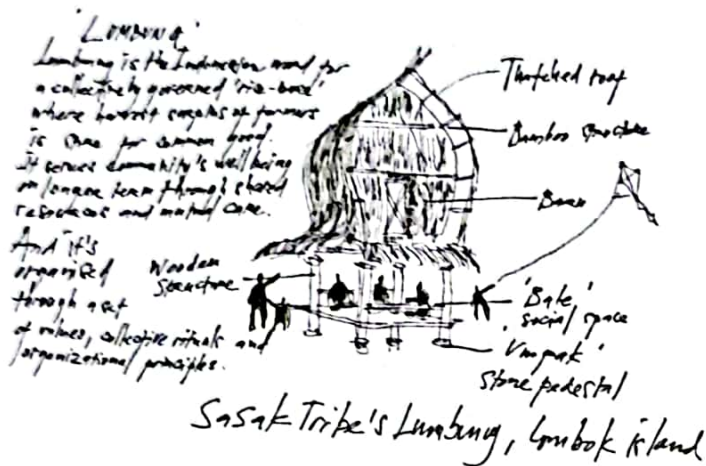 'LUMBUNG'
Lumbung is the Indonesian word for
a collectively governed 'rice-barn'
where harvest surplus of farmers
is for common good.
It serves community's well being
on longer term through shared
resources and mutual care.
And it's
organised
through a set
of values, collective rituals and
organizational principles.
Thatched roof
Bamboo structure
Wooden
structure
social space
stone pedestal
Sasak Tribe's Lumbung, lombok island